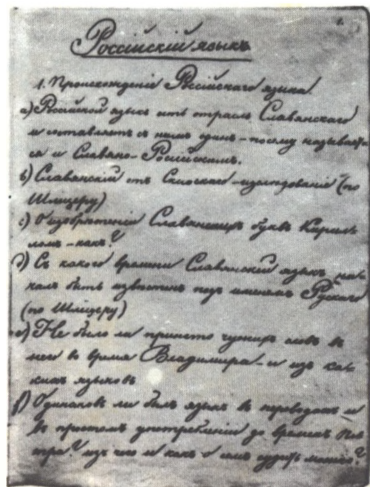 1.
Россійскій языкъ
1. Происхожденіе Россійскаго языка.
а) Россійской языкъ есть отрасль Славянскаго
и составляетъ съ нимъ одинъ – посему называет-
ся и Славяно-Россійскимъ.
b) Славянскій отъ Скиѳскаго – изслѣдованій (по
Шлицеру)
c) О изобрѣтеніи Славянскихъ буквъ Кирил-
ломъ – какъ?
d) Съ какого времени Славянскій языкъ на-
чалъ быть извѣстенъ подъ именемъ Рускаго
(по Шлицеру)
e) Не было ли принято чужихъ словъ въ
него во время Владимира – и изъ ка-
кихъ языковъ
f) Одинаковъ ли былъ языкъ въ переводахъ и
въ простомъ употребленіи до временъ Пе-
тра? изъ чего и какъ о нихъ судить можно?